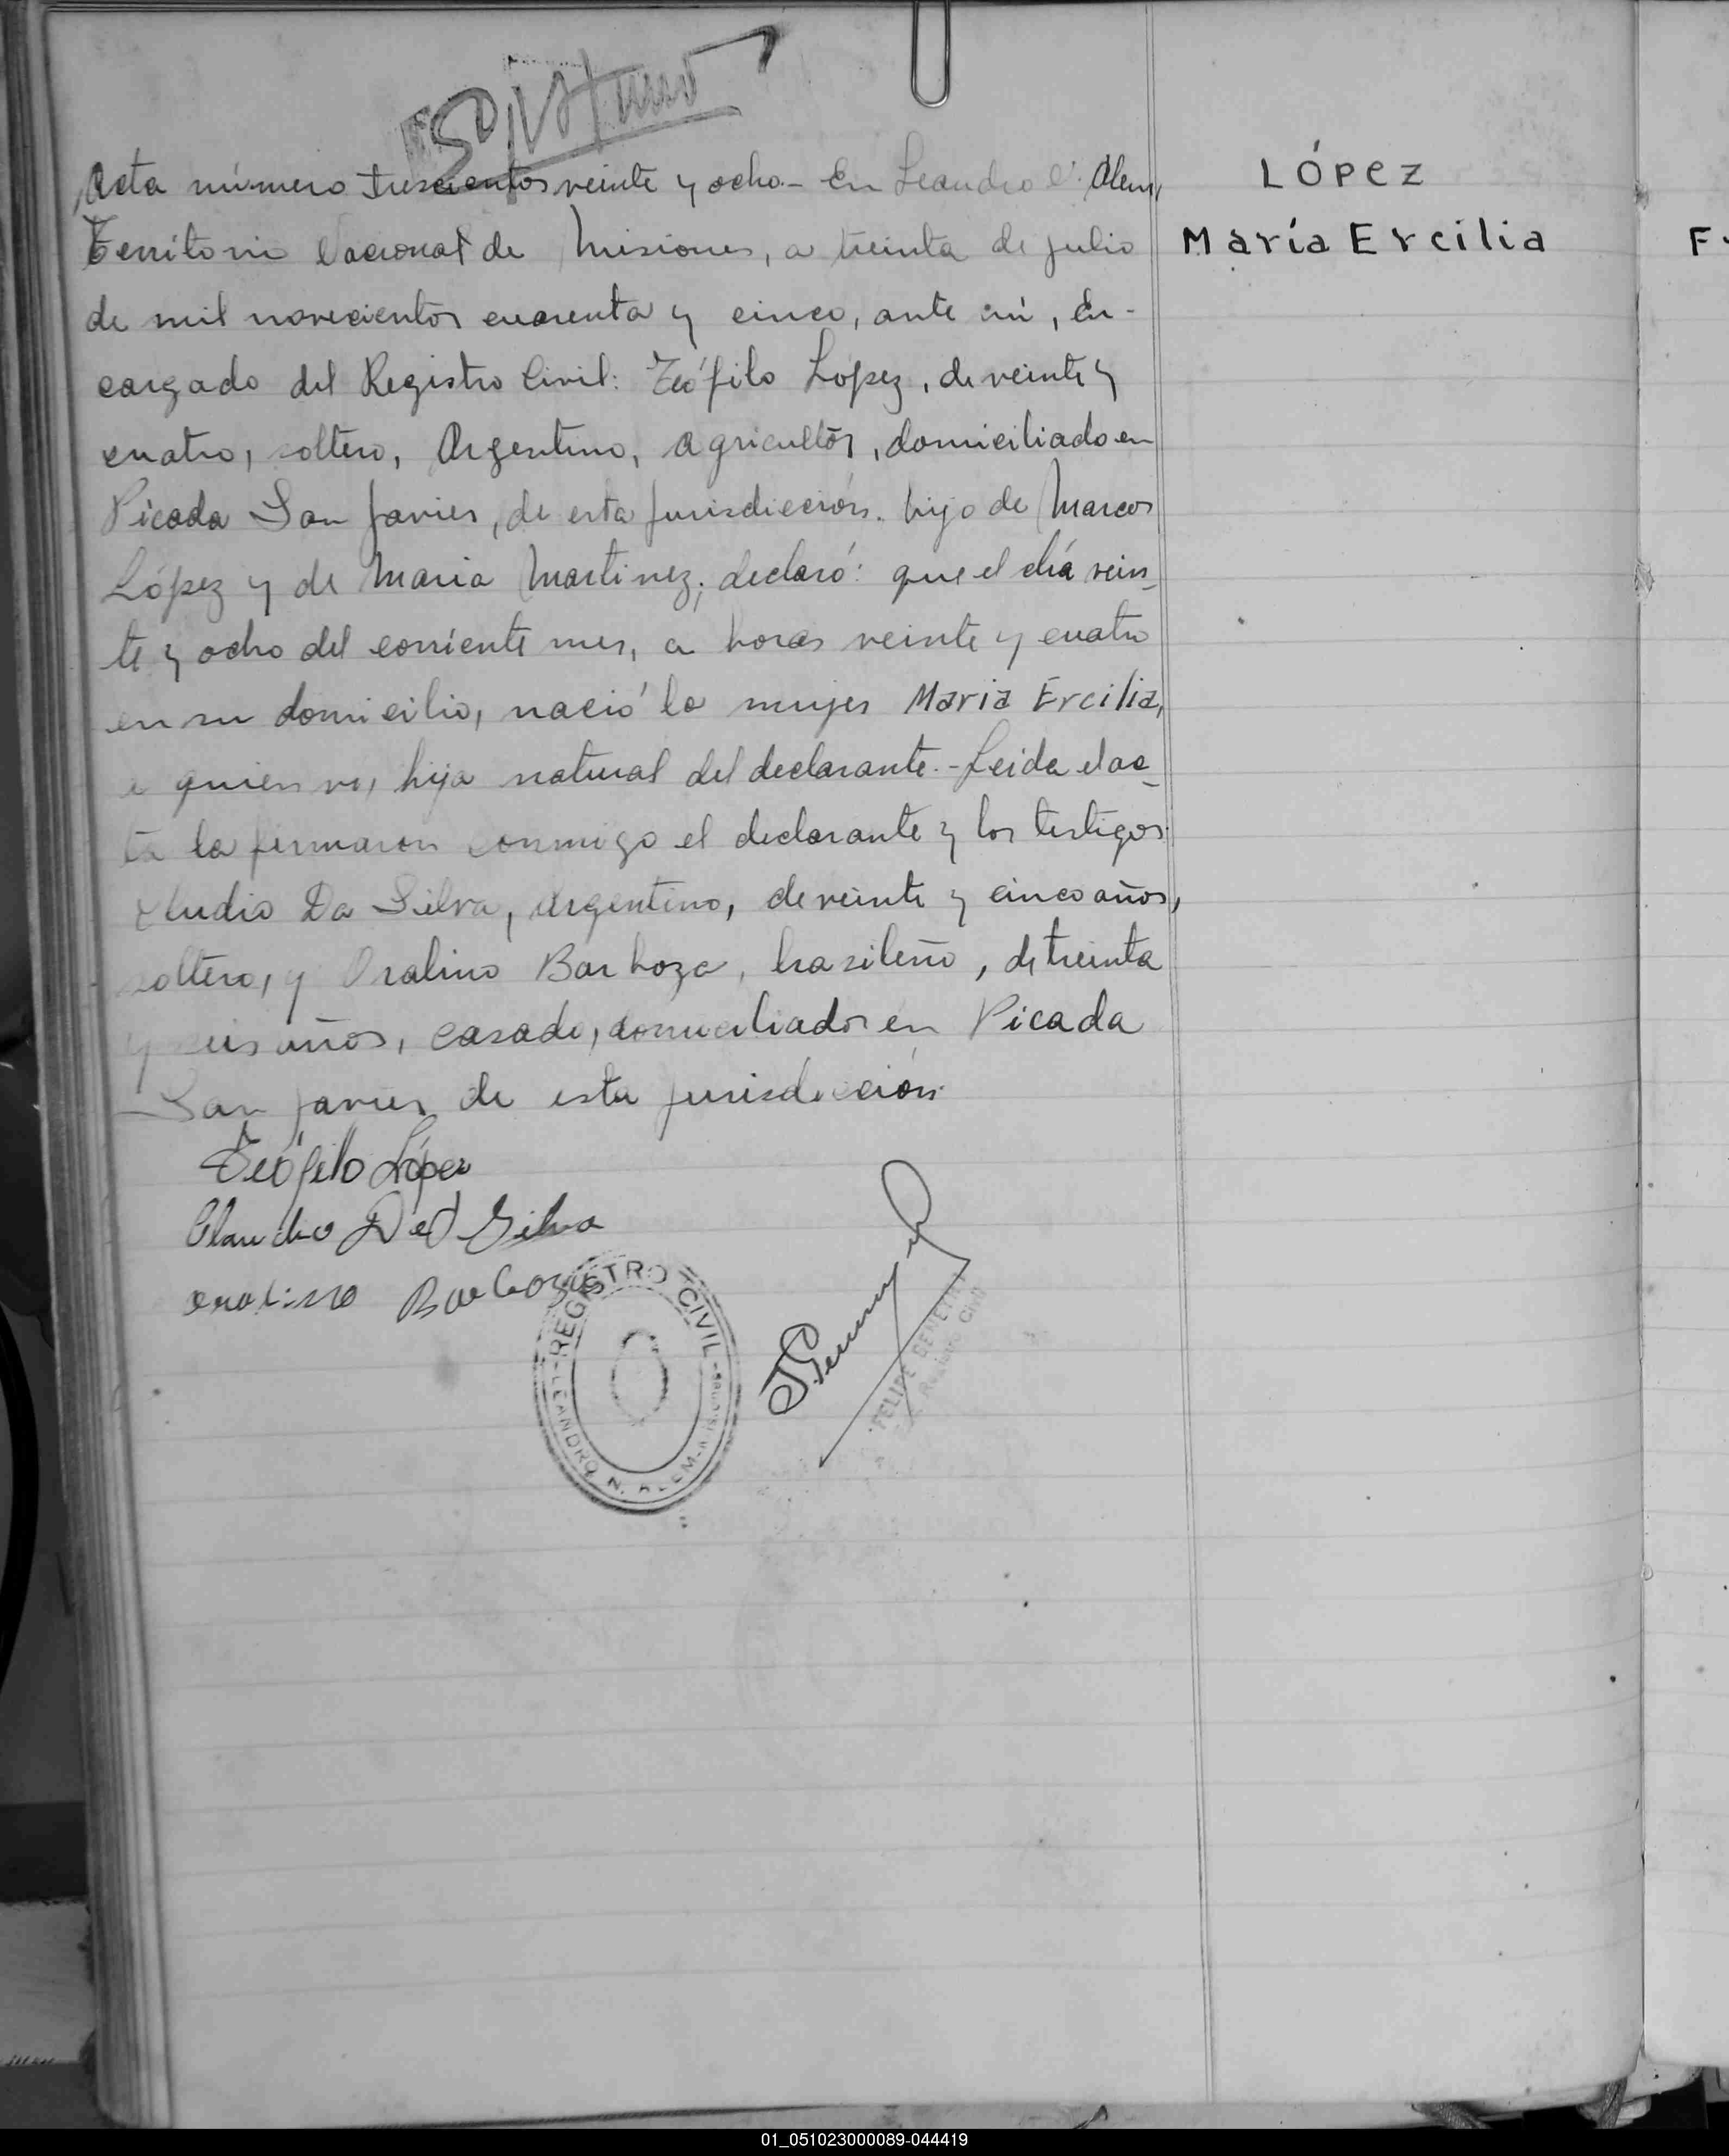 Acta número trescientos veinte y ocho.- En Leandro N. Alem,
Territorio Nacional de Misiones, a treinta de julio
de mil novecientos cuarenta y cinco, ante mí, En-
cargado del Registro Civil: Teófilo López, de veinte y
cuatro, soltero, Argentino, agricultor, domiciliado en
Picada San Javier, de esta jurisdicción, hijo de Marcos
López y de Maria Martinez; declaró: que el día vein-
te y ocho del corriente mes, a horas veinte y cuatro
en su domicilio, nació la mujer Maria Ercilia,
a quien vi, hija natural del declarante.- Leida el ac-
ta la firmaron conmigo el declarante y los testigos
Cludio Da Silva, argentino, de veinte y cinco años,
soltero, y Oralino Barboza, brasileño, de treinta
y seis años, casado, domiciliados en Picada
San Javier de esta jurisdicción.
Teófilo López
Claudio Da Silva
Oralino Barboza
REGISTRO CIVIL
LEANDRO N. ALEM
FELIPE
Registro Civil
LÓPEZ
María Ercilia
F
01_051023000089-044419